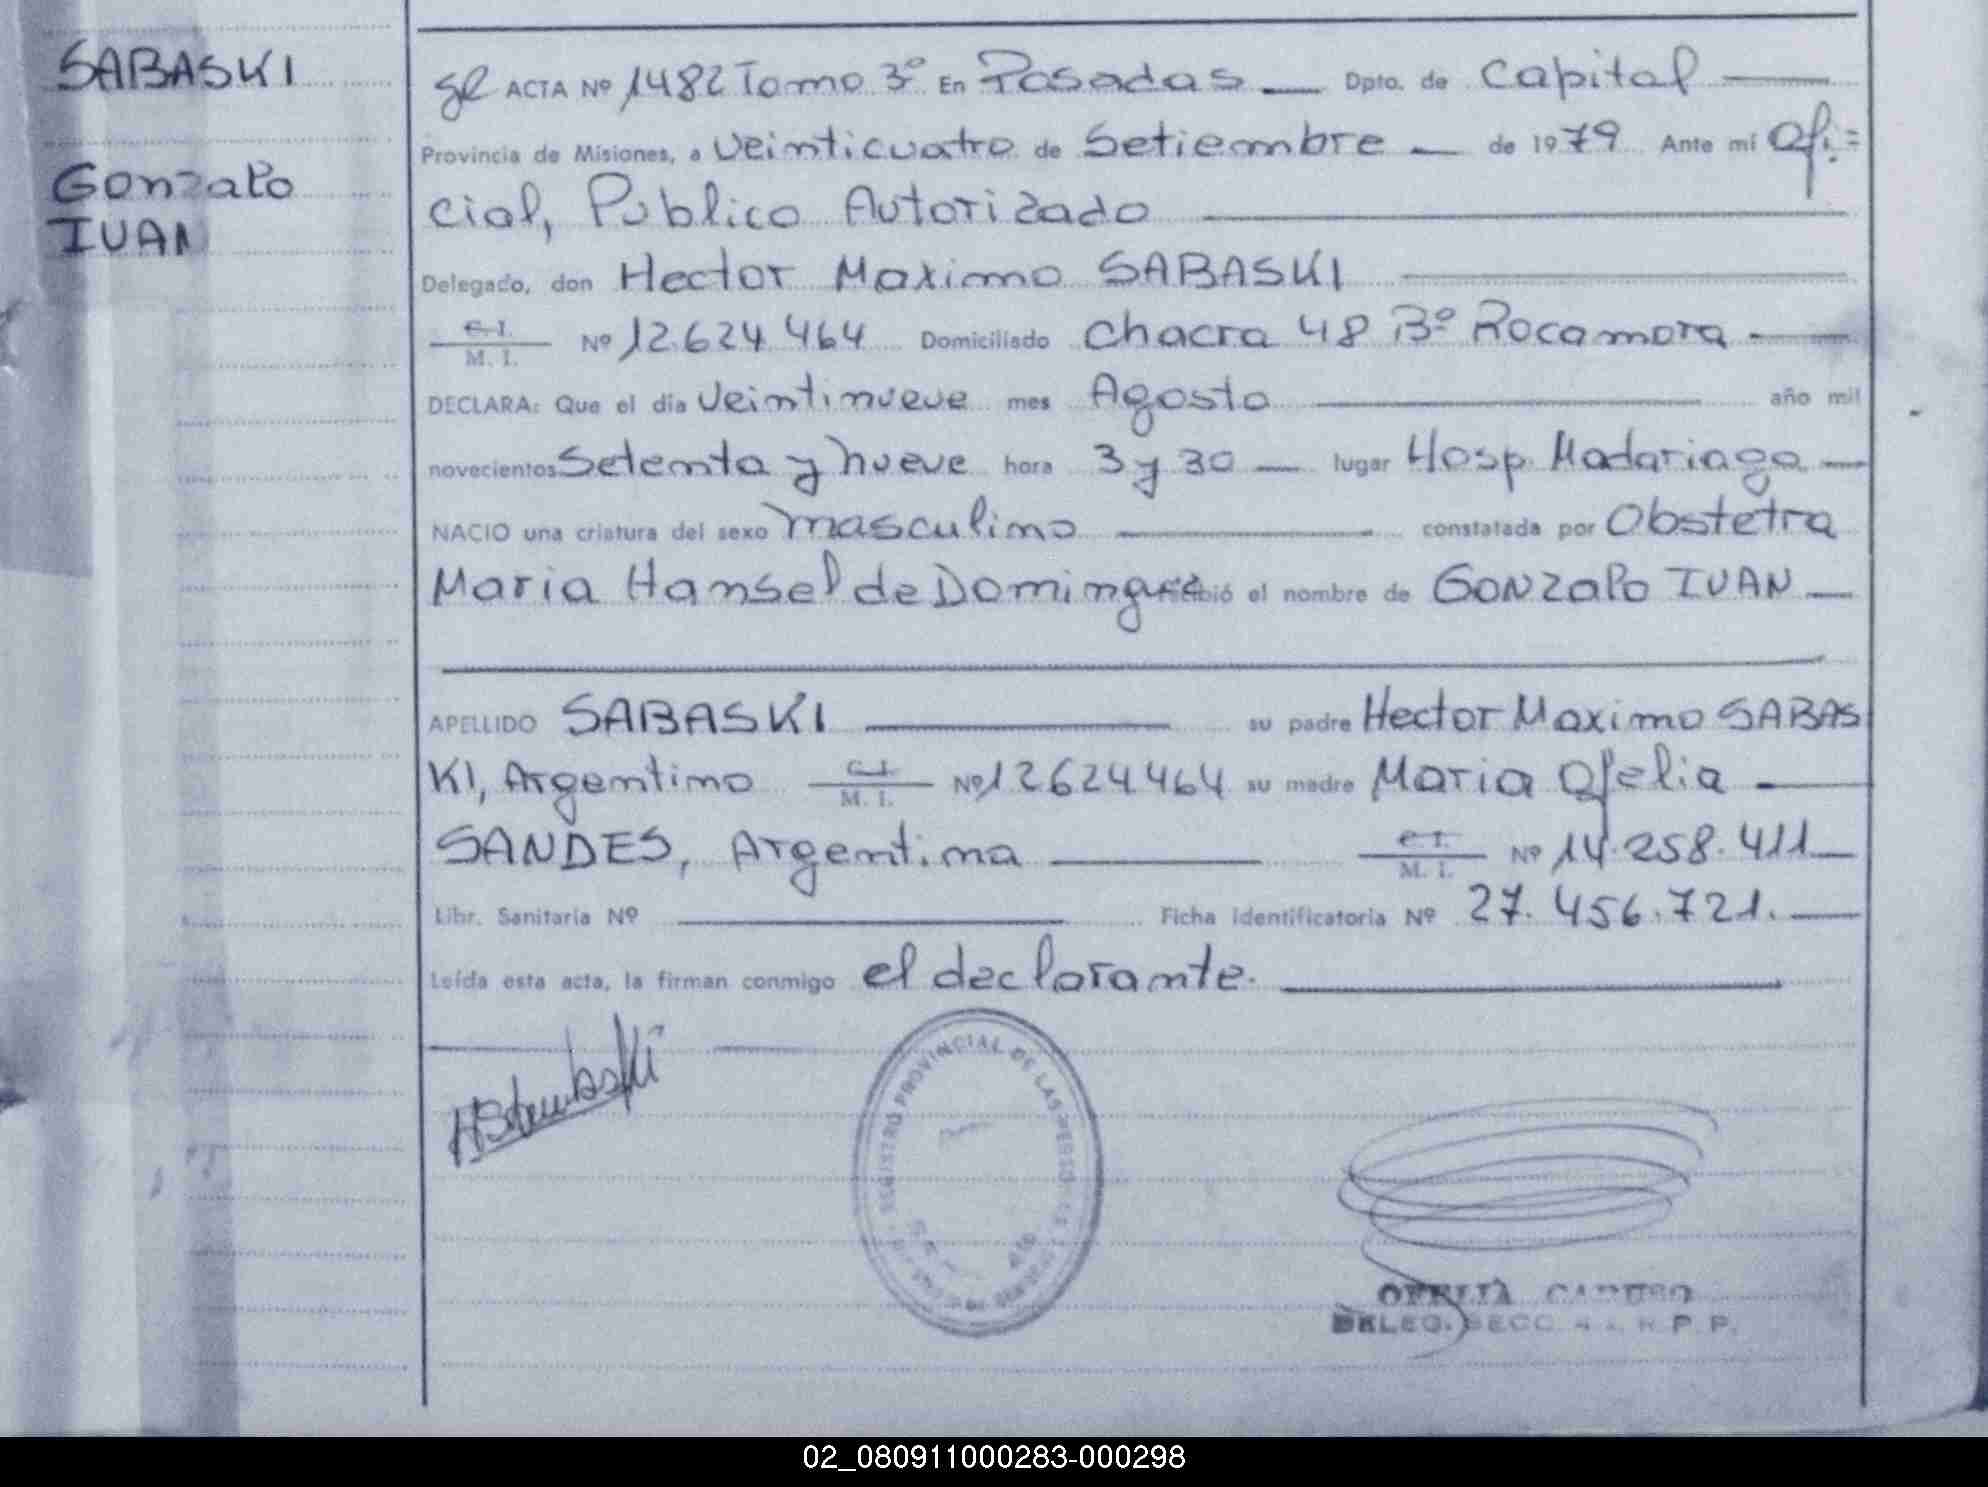 SABASKI
Gonzalo
IVAN
ACTA Nº 1482 Tomo 3º En Posadas Dpto. de Capital
Provincia de Misiones, a veinticuatro de Setiembre de 1979 Ante mí Ofi=
cial, Publico Autorizado
Delegado, don Hector Maximo SABASKI
C.I. / M. I. Nº 12.624 464 Domiciliado Chacra 48 Bº Rocamora
DECLARA: Que el día veintinueve mes Agosto año mil
novecientos Setenta y nueve hora 3 y 30 lugar Hosp. Madariaga
NACIO una criatura del sexo masculino constatada por Obstetra
Maria Hansel de Domingue recibió el nombre de GONZALO IVAN
APELLIDO SABASKI su padre Hector Maximo SABAS
KI, Argentino C.I. / M. I. Nº 12624464 su madre Maria Ofelia
SANDES, Argentina C.I. / M. I. Nº 14.258.411
Libr. Sanitaria Nº Ficha Identificatoria Nº 27.456.721.
Leída esta acta, la firman conmigo el declarante.
REGISTRO PROVINCIAL DE LAS PERSONAS
OFELIA CARUSO
DELEG. SECC. 4a. R. P. P.
02_080911000283-000298